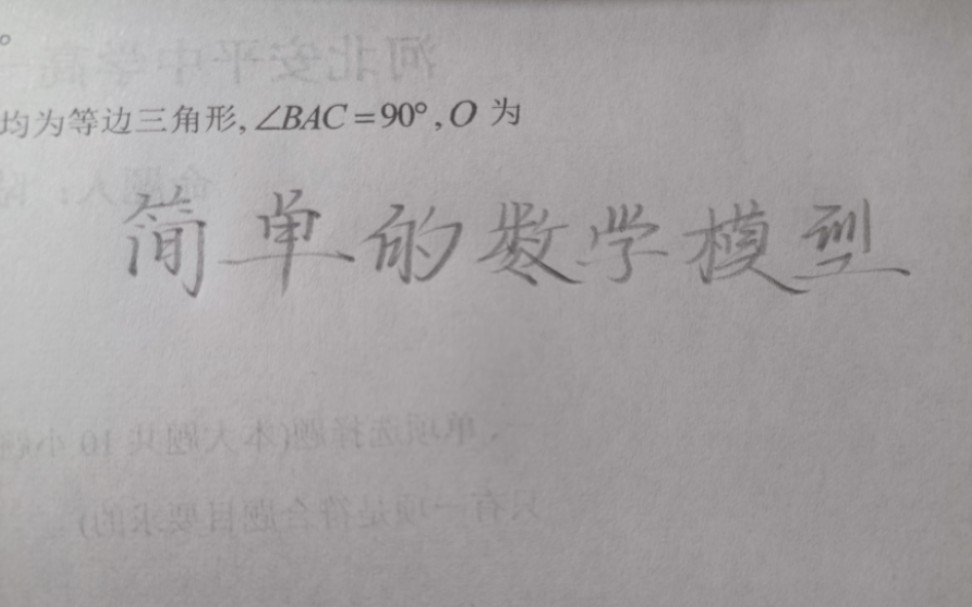 。
均为等边三角形,∠BAC=90°,O 为
简单的数学模型